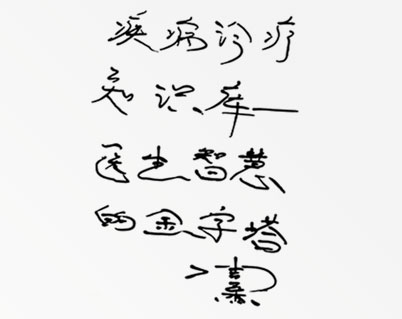 疾病诊疗
知识库—
医生智慧
的金字塔